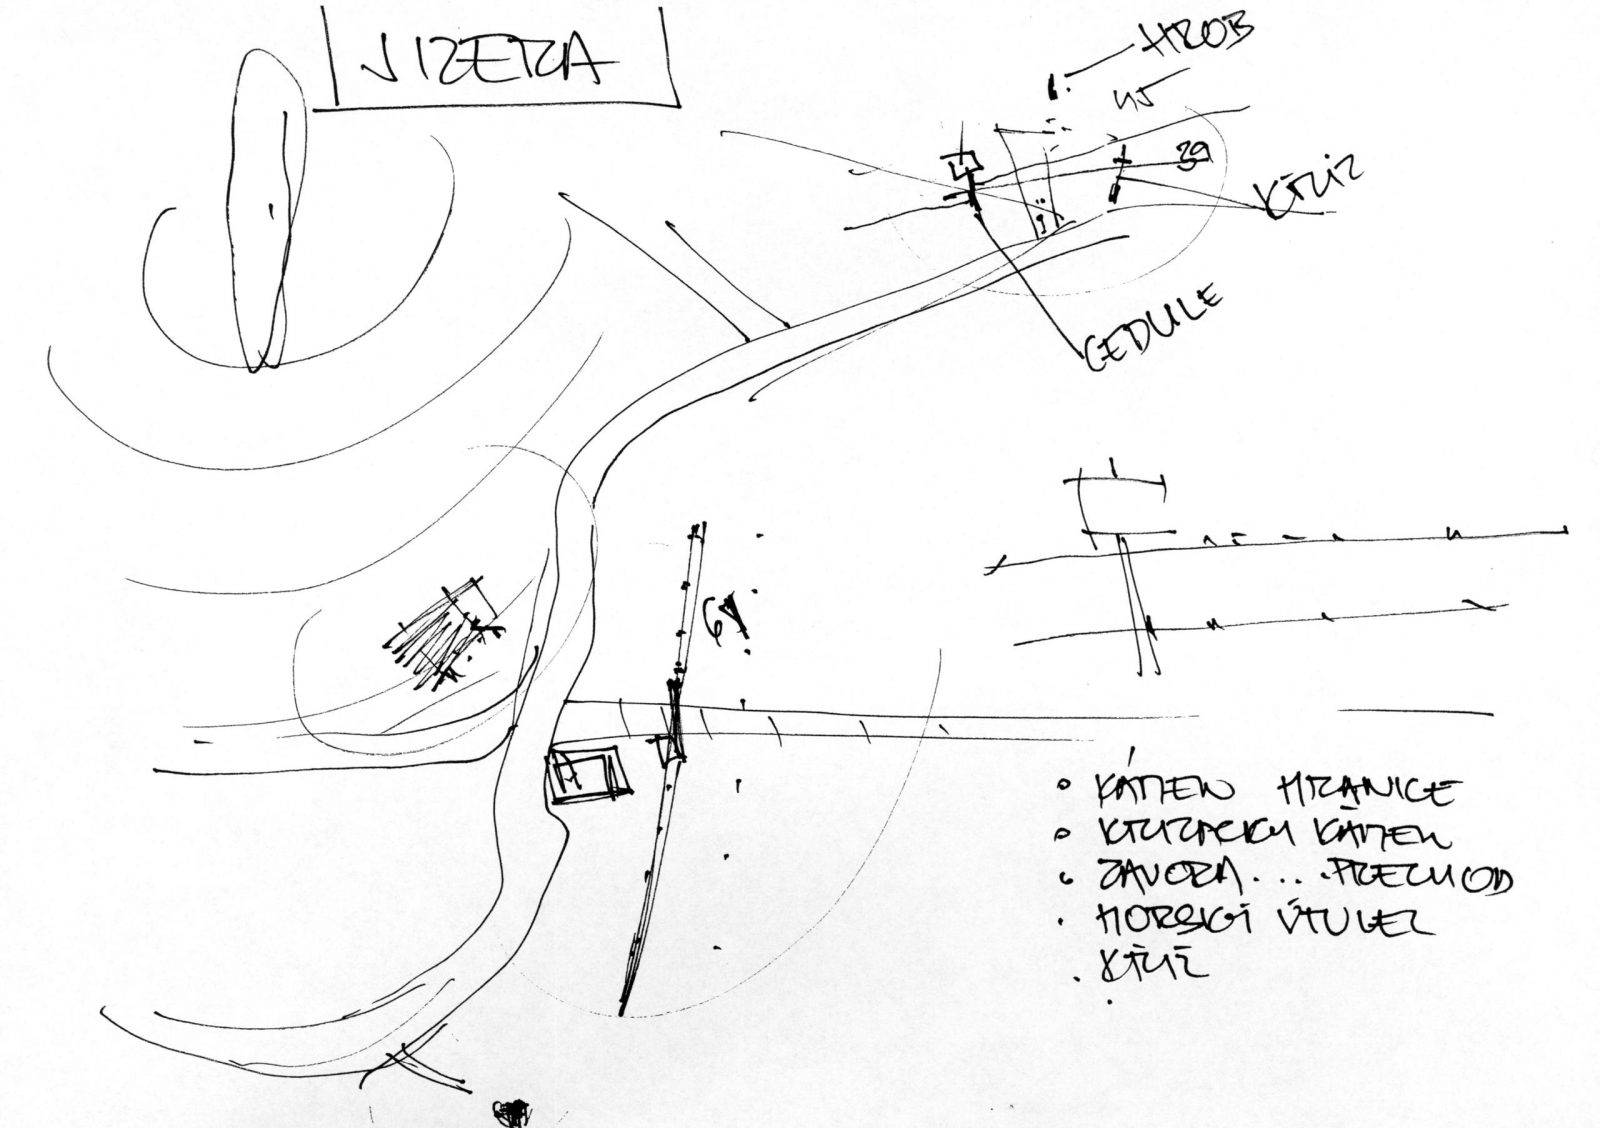 JIZERA
HROB
45
39
KŘÍŽ
CEDULE
KÁMEN HRANICE
KÁMEN
ZÁVORA....PŘECHOD
HORSKÝ ÚTULEK
KŘÍŽ